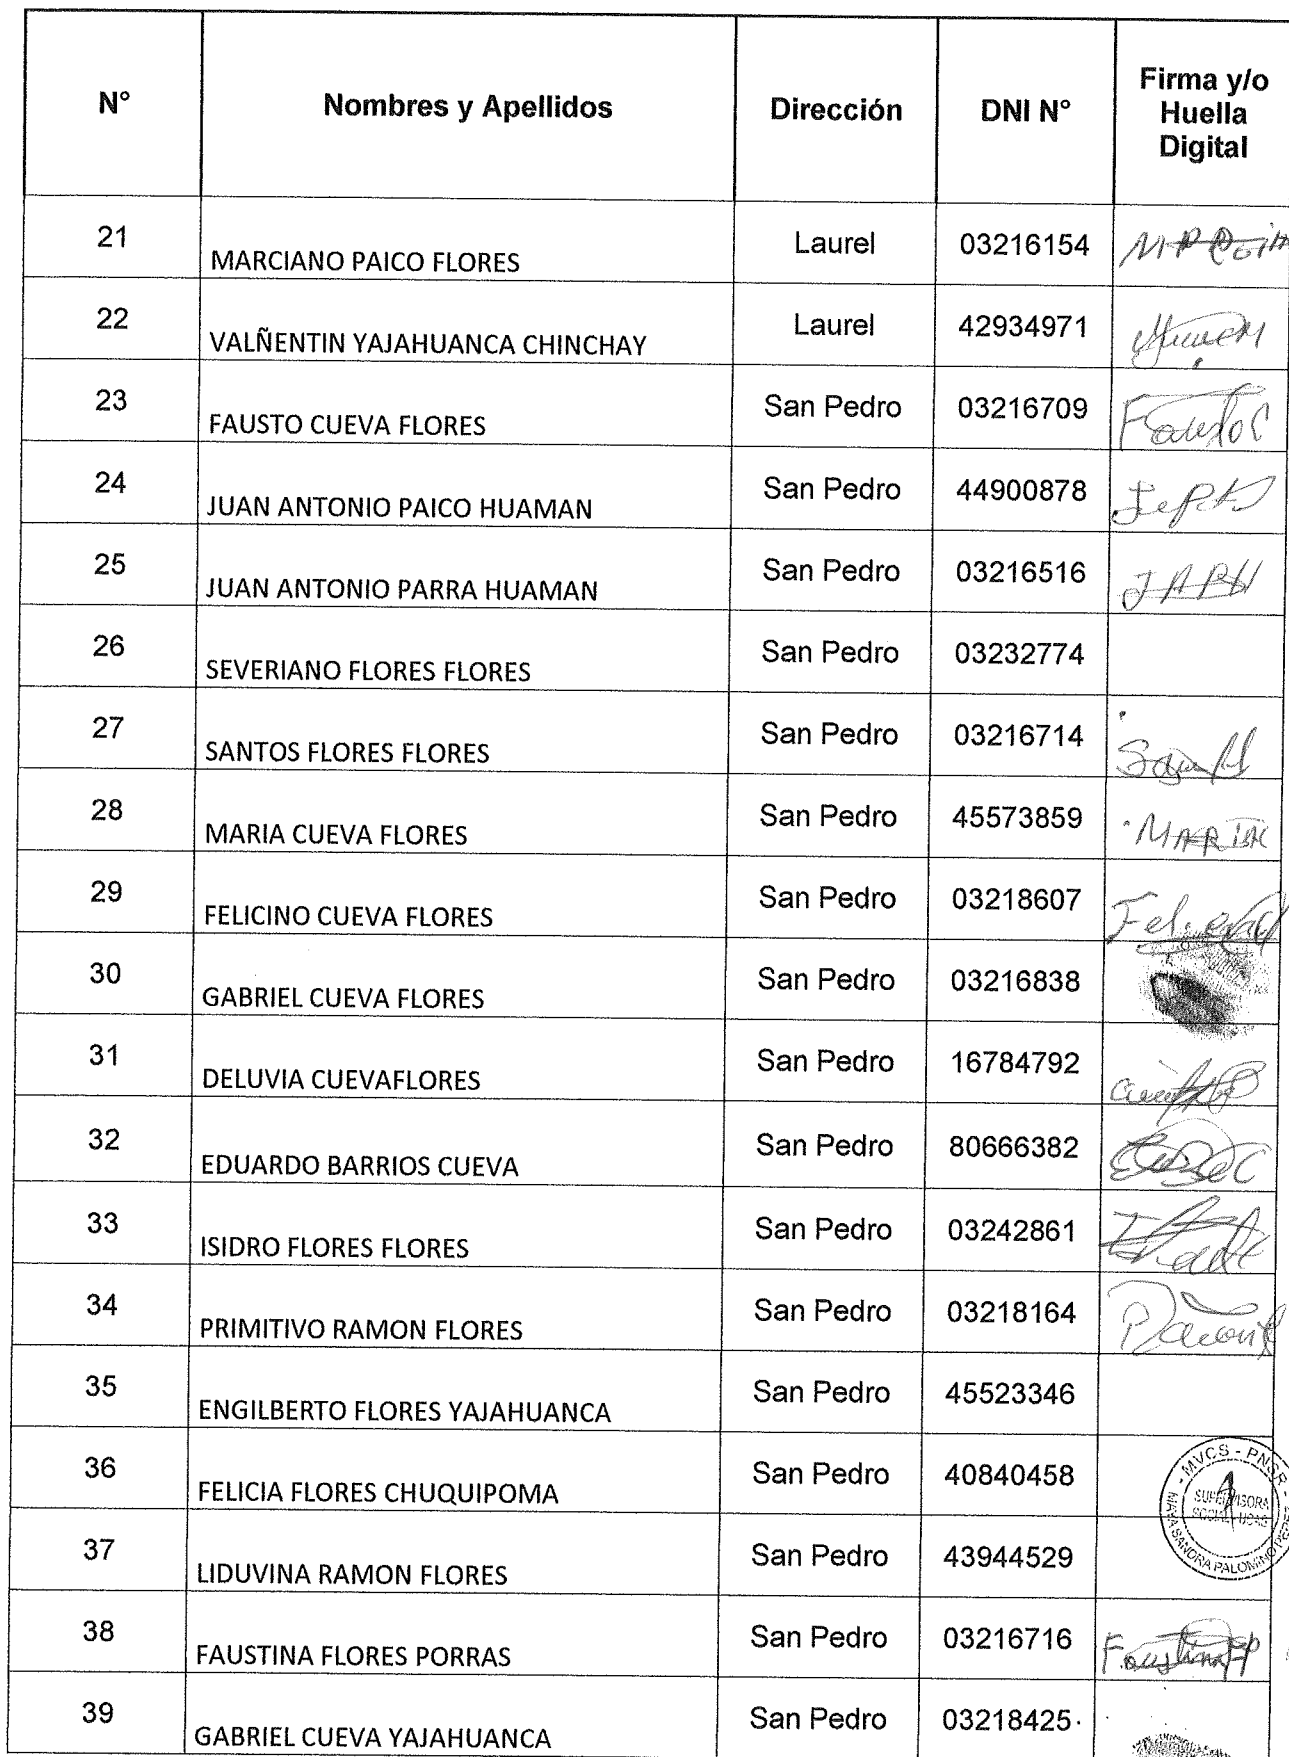 N° Nombres y Apellidos Dirección DNI N° Firma y/o Huella Digital
21 MARCIANO PAICO FLORES Laurel 03216154
22 VALÑENTIN YAJAHUANCA CHINCHAY Laurel 42934971
23 FAUSTO CUEVA FLORES San Pedro 03216709 Fausto C
24 JUAN ANTONIO PAICO HUAMAN San Pedro 44900878
25 JUAN ANTONIO PARRA HUAMAN San Pedro 03216516 JAPH
26 SEVERIANO FLORES FLORES San Pedro 03232774
27 SANTOS FLORES FLORES San Pedro 03216714
28 MARIA CUEVA FLORES San Pedro 45573859
29 FELICINO CUEVA FLORES San Pedro 03218607
30 GABRIEL CUEVA FLORES San Pedro 03216838
31 DELUVIA CUEVAFLORES San Pedro 16784792
32 EDUARDO BARRIOS CUEVA San Pedro 80666382
33 ISIDRO FLORES FLORES San Pedro 03242861
34 PRIMITIVO RAMON FLORES San Pedro 03218164
35 ENGILBERTO FLORES YAJAHUANCA San Pedro 45523346
36 FELICIA FLORES CHUQUIPOMA San Pedro 40840458
- MVCS - PNSR -
SUPERVISORA
SOCIAL - UCAS
SANDRA PALOMINO PEREZ
37 LIDUVINA RAMON FLORES San Pedro 43944529
38 FAUSTINA FLORES PORRAS San Pedro 03216716 Faustina FP
39 GABRIEL CUEVA YAJAHUANCA San Pedro 03218425